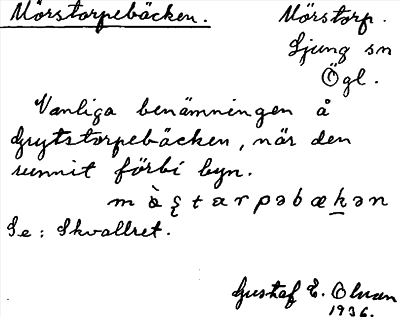 Mörstorpebäcken.
Mörstorp.
Ljung sn
Ögl.
Vanliga benämningen å
Grytstorpebäcken, när den
runnit förbi byn.
Se: Skvallret.
Gustaf E. Olvan
1936.